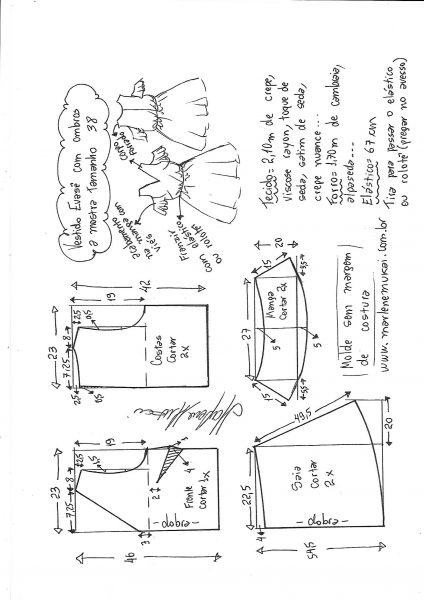 Vestido Evasê com ombros
a mostra tamanho 38
corpo
forrado
acabamento
viés
na manga com
Franzir
elástico
com
ou rolotê
Tecido= 2,10m de crepe,
viscose rayon, toque de
seda, satim de seda,
crepe nuance...
Forro= 1,70m de cambraia,
alpaseda...
Elástico= 67 cm
Tira para passar o elástico
ou rolotê (pregar no avesso)
23
7,25
8
2,5
0,5
2,5
0,5
19
42
Costas
Cortar
2x
23
7,25
8
2,5
1,5
19
46
3
2
4
3
Frente
Cortar 1x
-dobra-
15
20
3,5
27
Manga
Cortar 2x
5
5
15
3,5
Molde sem margem
de costura
www.marlenemukai.com.br
22,5
49,5
4
54,5
20
Saia
Cortar
2x
-dobra-